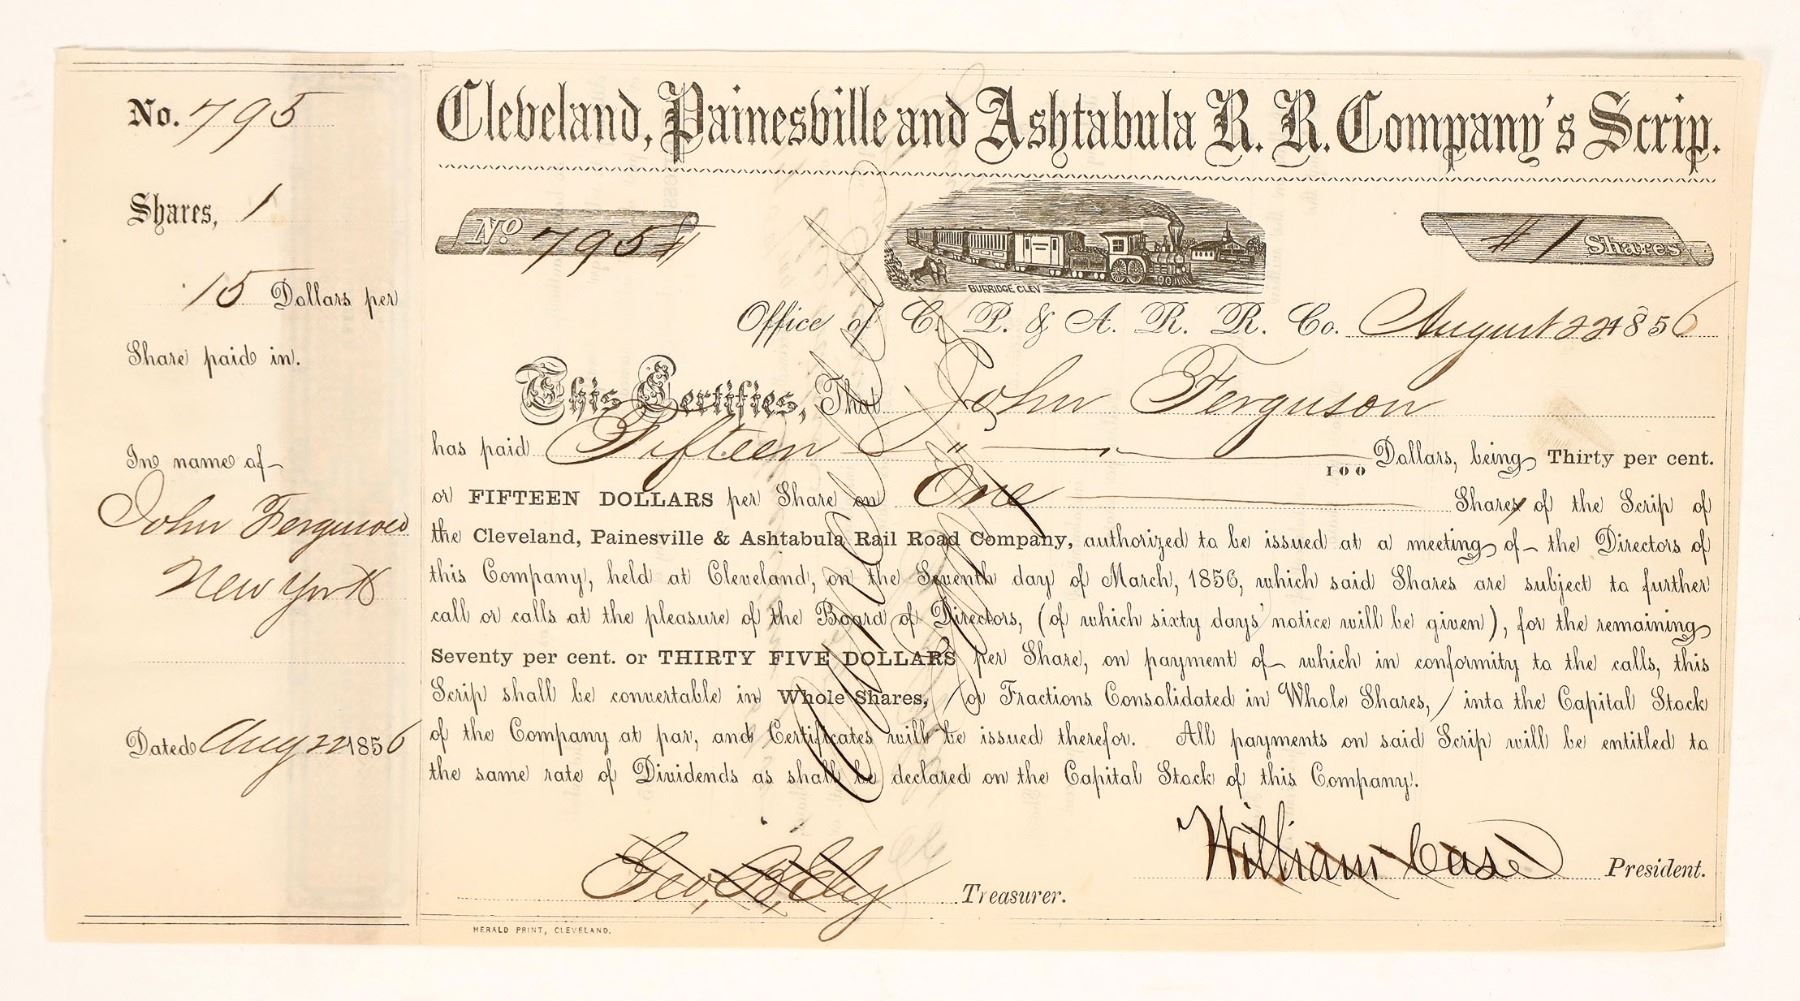 No. 795
Shares, 1
15 Dollars per
Share paid in.
In name of
John Ferguson
New York
Dated Aug 22 1856
Cleveland, Painesville and Ashtabula R. R. Company's Scrip.
No 795
BURRIDGE CLEV
1 Shares
Office of C. P. & A. R. R. Co. August 22 1856
This Certifies, That John Ferguson
has paid Fifteen " 100 Dollars, being Thirty per cent.
or FIFTEEN DOLLARS per Share on One Shares of the Scrip of
the Cleveland, Painesville & Ashtabula Rail Road Company, authorized to be issued at a meeting of the Directors of
this Company, held at Cleveland, on the Seventh day of March, 1856, which said Shares are subject to further
call or calls at the pleasure of the Board of Directors, (of which sixty days' notice will be given), for the remaining
Seventy per cent. or THIRTY FIVE DOLLARS per Share, on payment of which in conformity to the calls, this
Scrip shall be convertable in Whole Shares, (or Fractions Consolidated in Whole Shares,) into the Capital Stock
of the Company at par, and Certificates will be issued therefor. All payments on said Scrip will be entitled to
the same rate of Dividends as shall be declared on the Capital Stock of this Company.
Geo. B. Ely Treasurer.
William Case President.
HERALD PRINT, CLEVELAND.
Cancelled